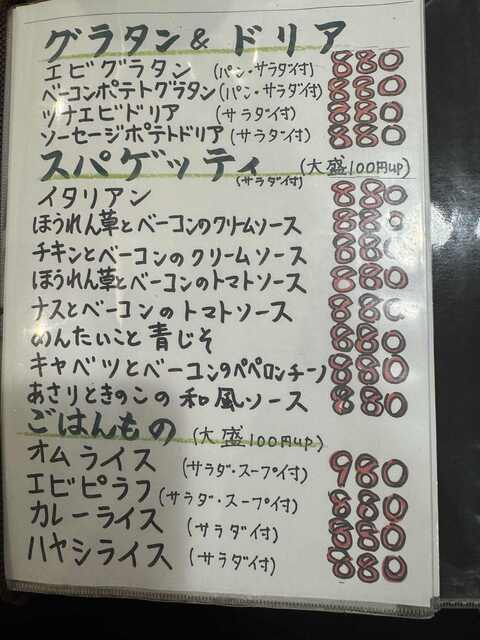 グラタン& ドリア
エビグラタン (パン・サラダ付) 880
ベーコンポテトグラタン(パン・サラダ付) 880
ツナエビドリア (サラダ付) 880
ソーセージポテトドリア(サラダ付) 880
スパゲッティ (サラダ付) (大盛100円up)
イタリアン 880
ほうれん草とベーコンのクリームソース 880
チキンとベーコンのクリームソース 880
ほうれん草とベーコンのトマトソース 880
ナスとベーコンのトマトソース 880
めんたいこと青じそ 880
キャベツとベーコンのペペロンチーノ 880
あさりときのこの和風ソース 880
ごはんもの (大盛100円up)
オムライス (サラダ・スープ付) 980
エビピラフ (サラダ・スープ付) 880
カレーライス (サラダ付) 880
ハヤシライス (サラダ付) 880